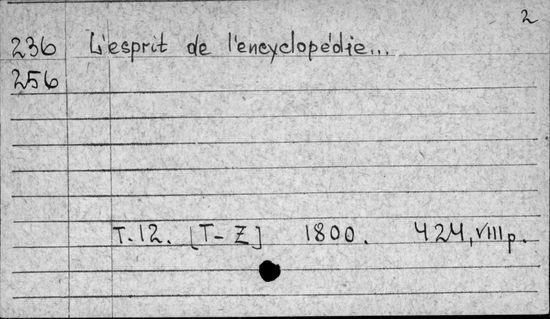 2
236 L'esprit de l'encyclopédie...
256
T. 12. [T-Z] 1800. 424, VIII p.